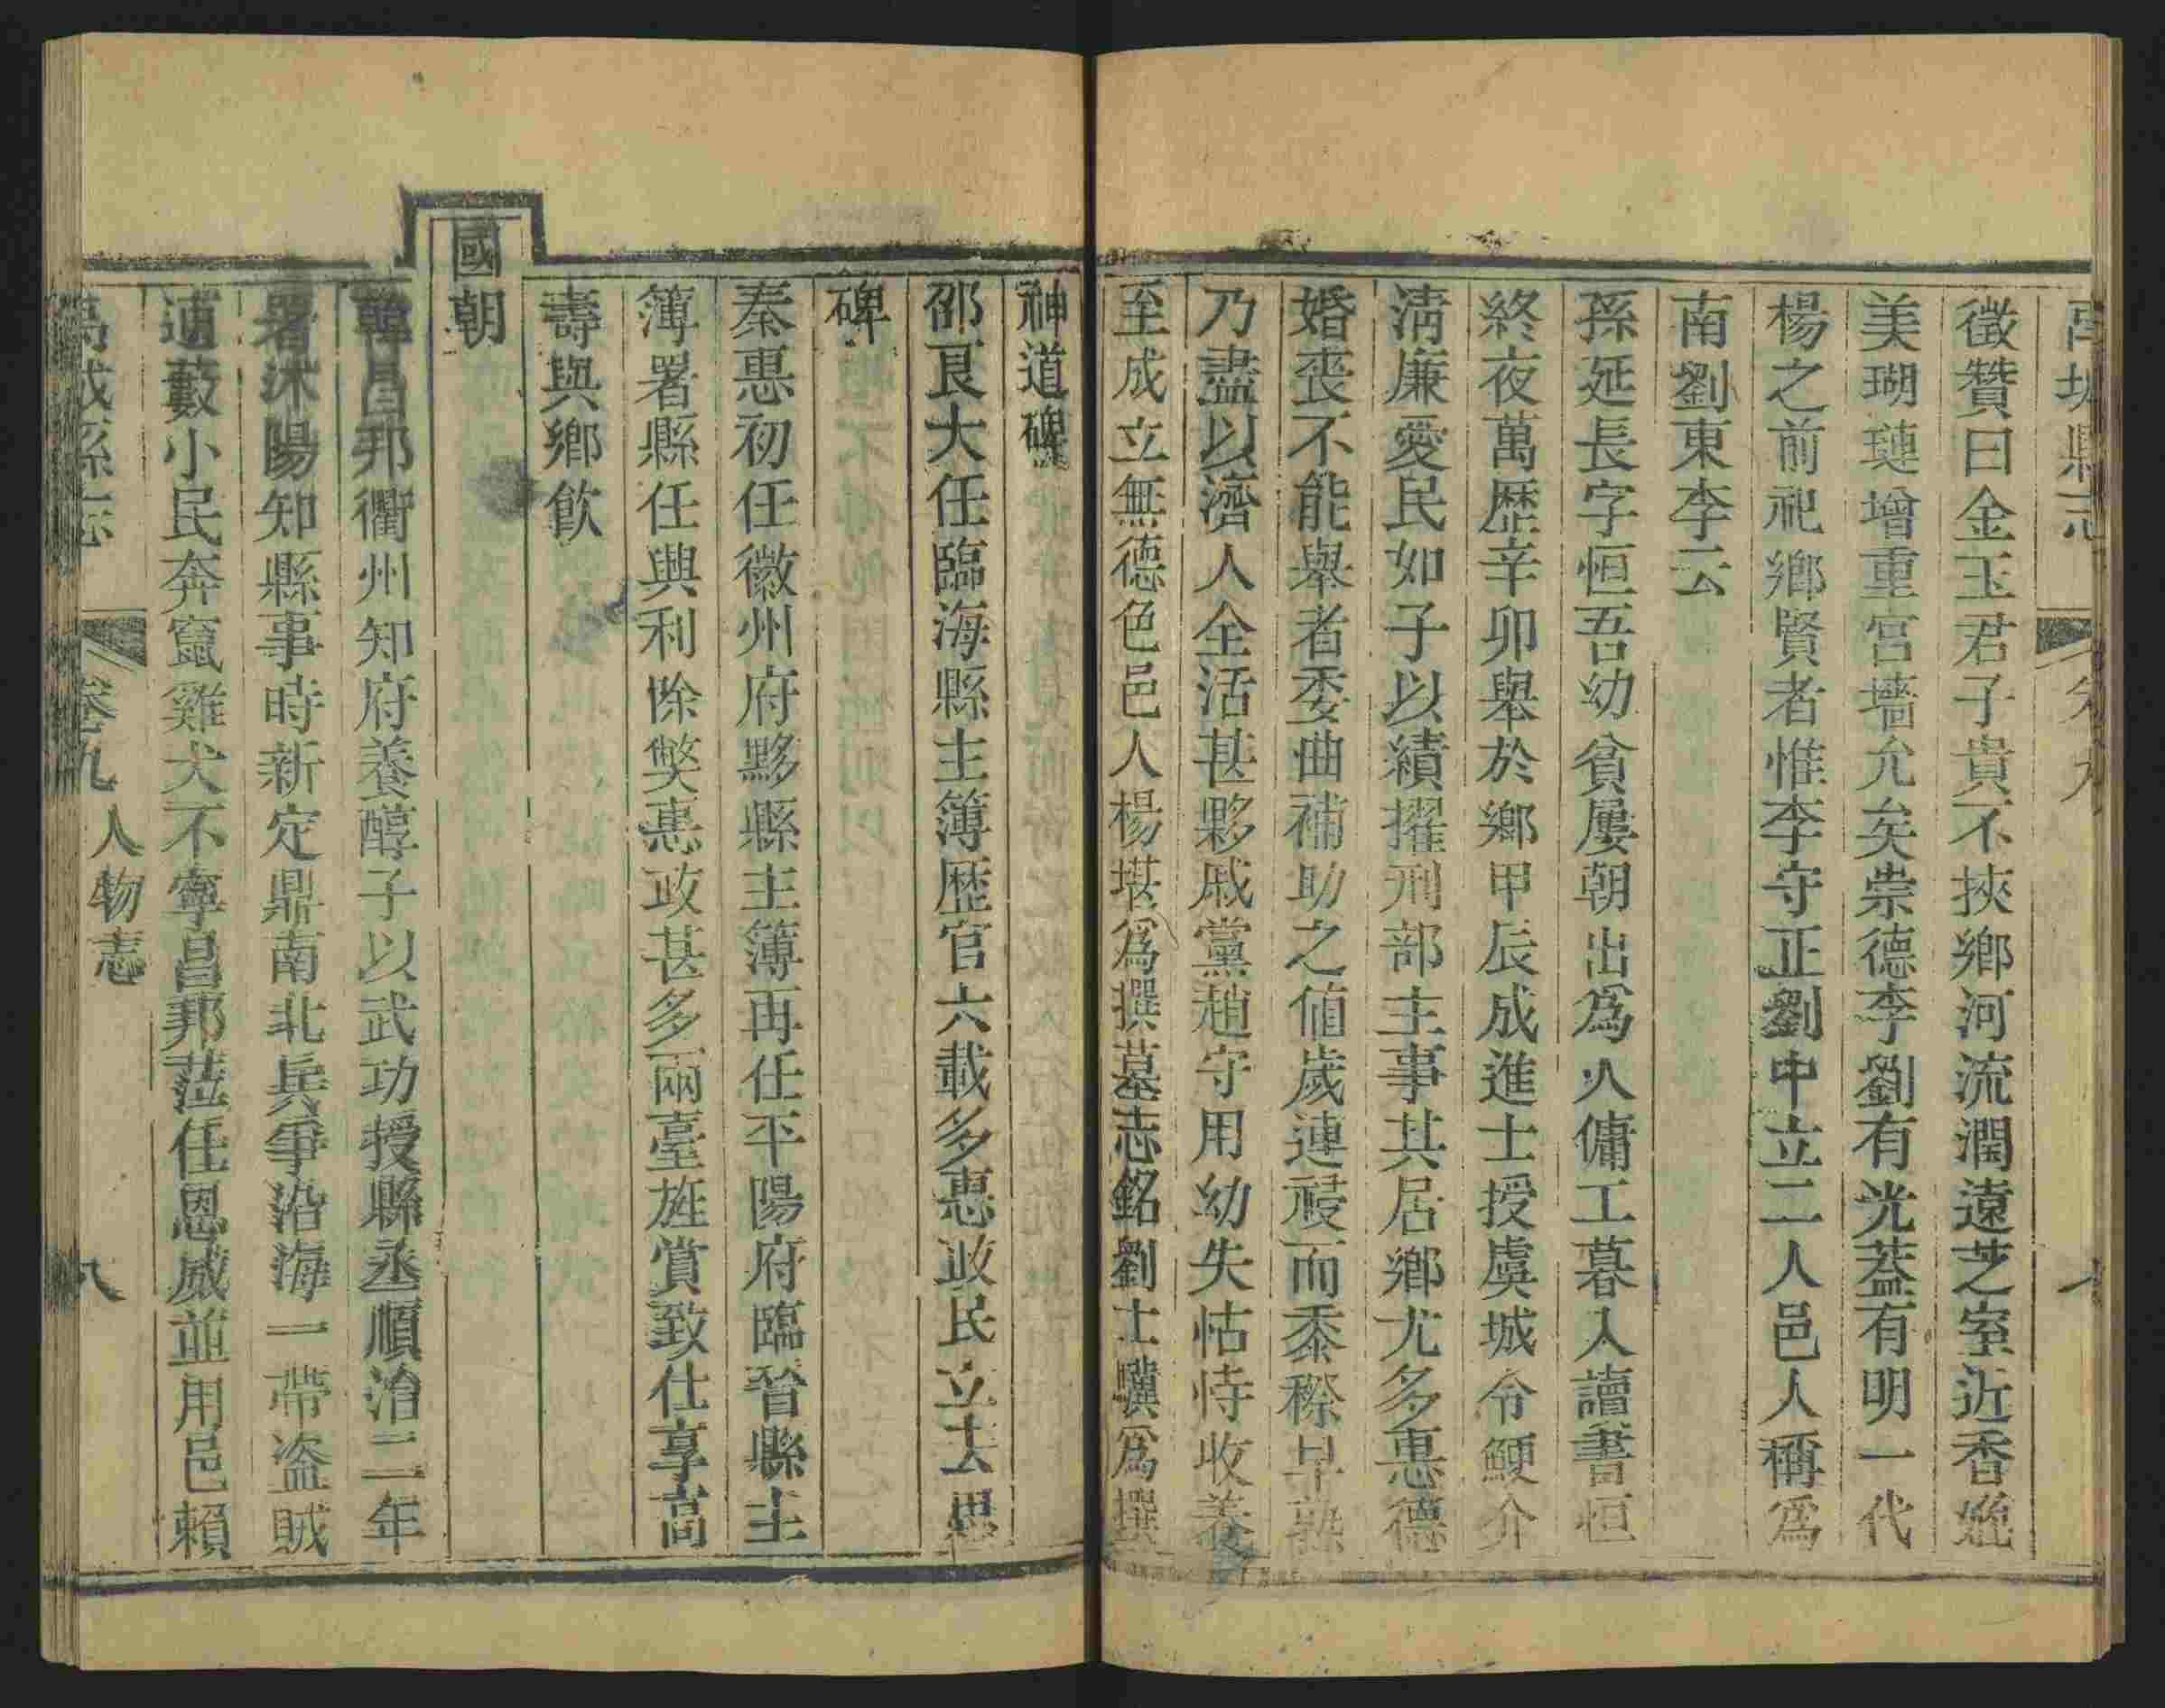 縣志
徵贊曰金玉君子貴不挾鄉河流潤遠芝室近香媲
美瑚璉增重宮墻允矣崇德李劉有光蓋有明一代
楊之前祀鄉賢者惟李守正劉中立二人邑人稱爲
南劉東李云
孫延長字恒吾幼貧屢朝出爲人傭工暮入讀書恒
終夜萬歴辛卯舉於鄉甲辰成進士授虞城令鯁介
淸廉愛民如子以績擢刑部主事其居鄉尤多惠德
婚喪不能舉者委曲補助之値歲連祲而黍穄早熟
乃盡以濟人全活甚夥戚黨趙守用幼失怙恃收養
至成立無德色邑人楊堪爲撰墓志銘劉士驥爲撰
神道碑
邵艮大任臨海縣主簿歴官六載多惠政民立去思
碑
秦惠初任徽州府黟縣主簿再任平陽府臨晉縣主
簿署縣任興利除獘惠政甚多兩臺旌賞致仕享高
壽與鄉飮
國朝
韓昌邦衢州知府養醇子以武功授縣丞順治二年
署沭陽知縣事時新定鼎南北兵爭沿海一帶盗賊
逋藪小民奔竄雞犬不寧昌邦蒞任恩威並用邑賴
禹城縣志 卷九 人物志 八